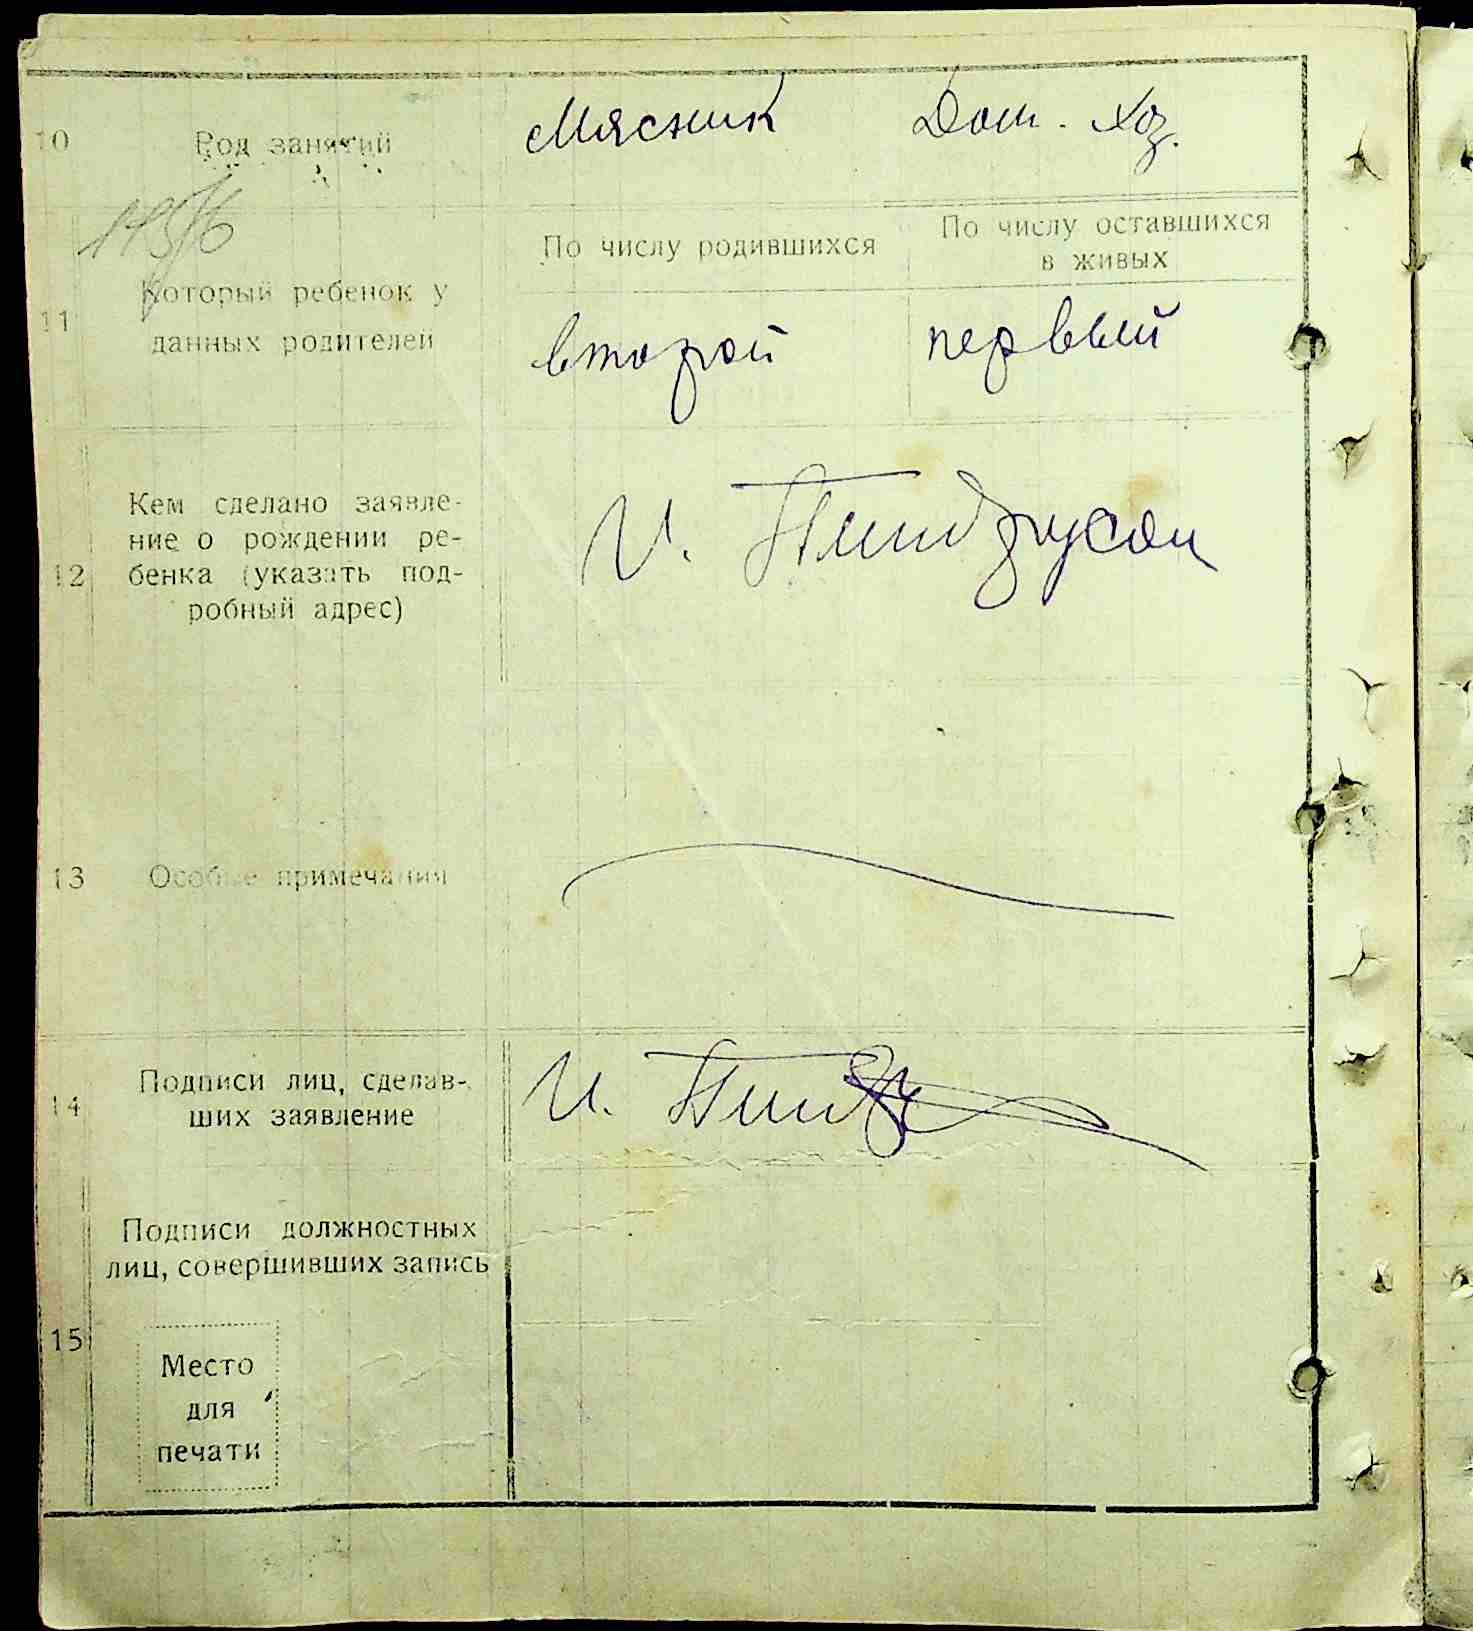 10 Род занятий Мясник Дом. хоз.
По числу родившихся
По числу оставшихся
в живых
11 Который ребенок у
данных родителей
второй первый
12 Кем сделано заявле-
ние о рождении ре-
бенка (указать под-
робный адрес)
И.
13 Особые примечания
14 Подписи лиц, сделав-
ших заявление
И.
15 Подписи должностных
лиц, совершивших запись
Место
для
печати